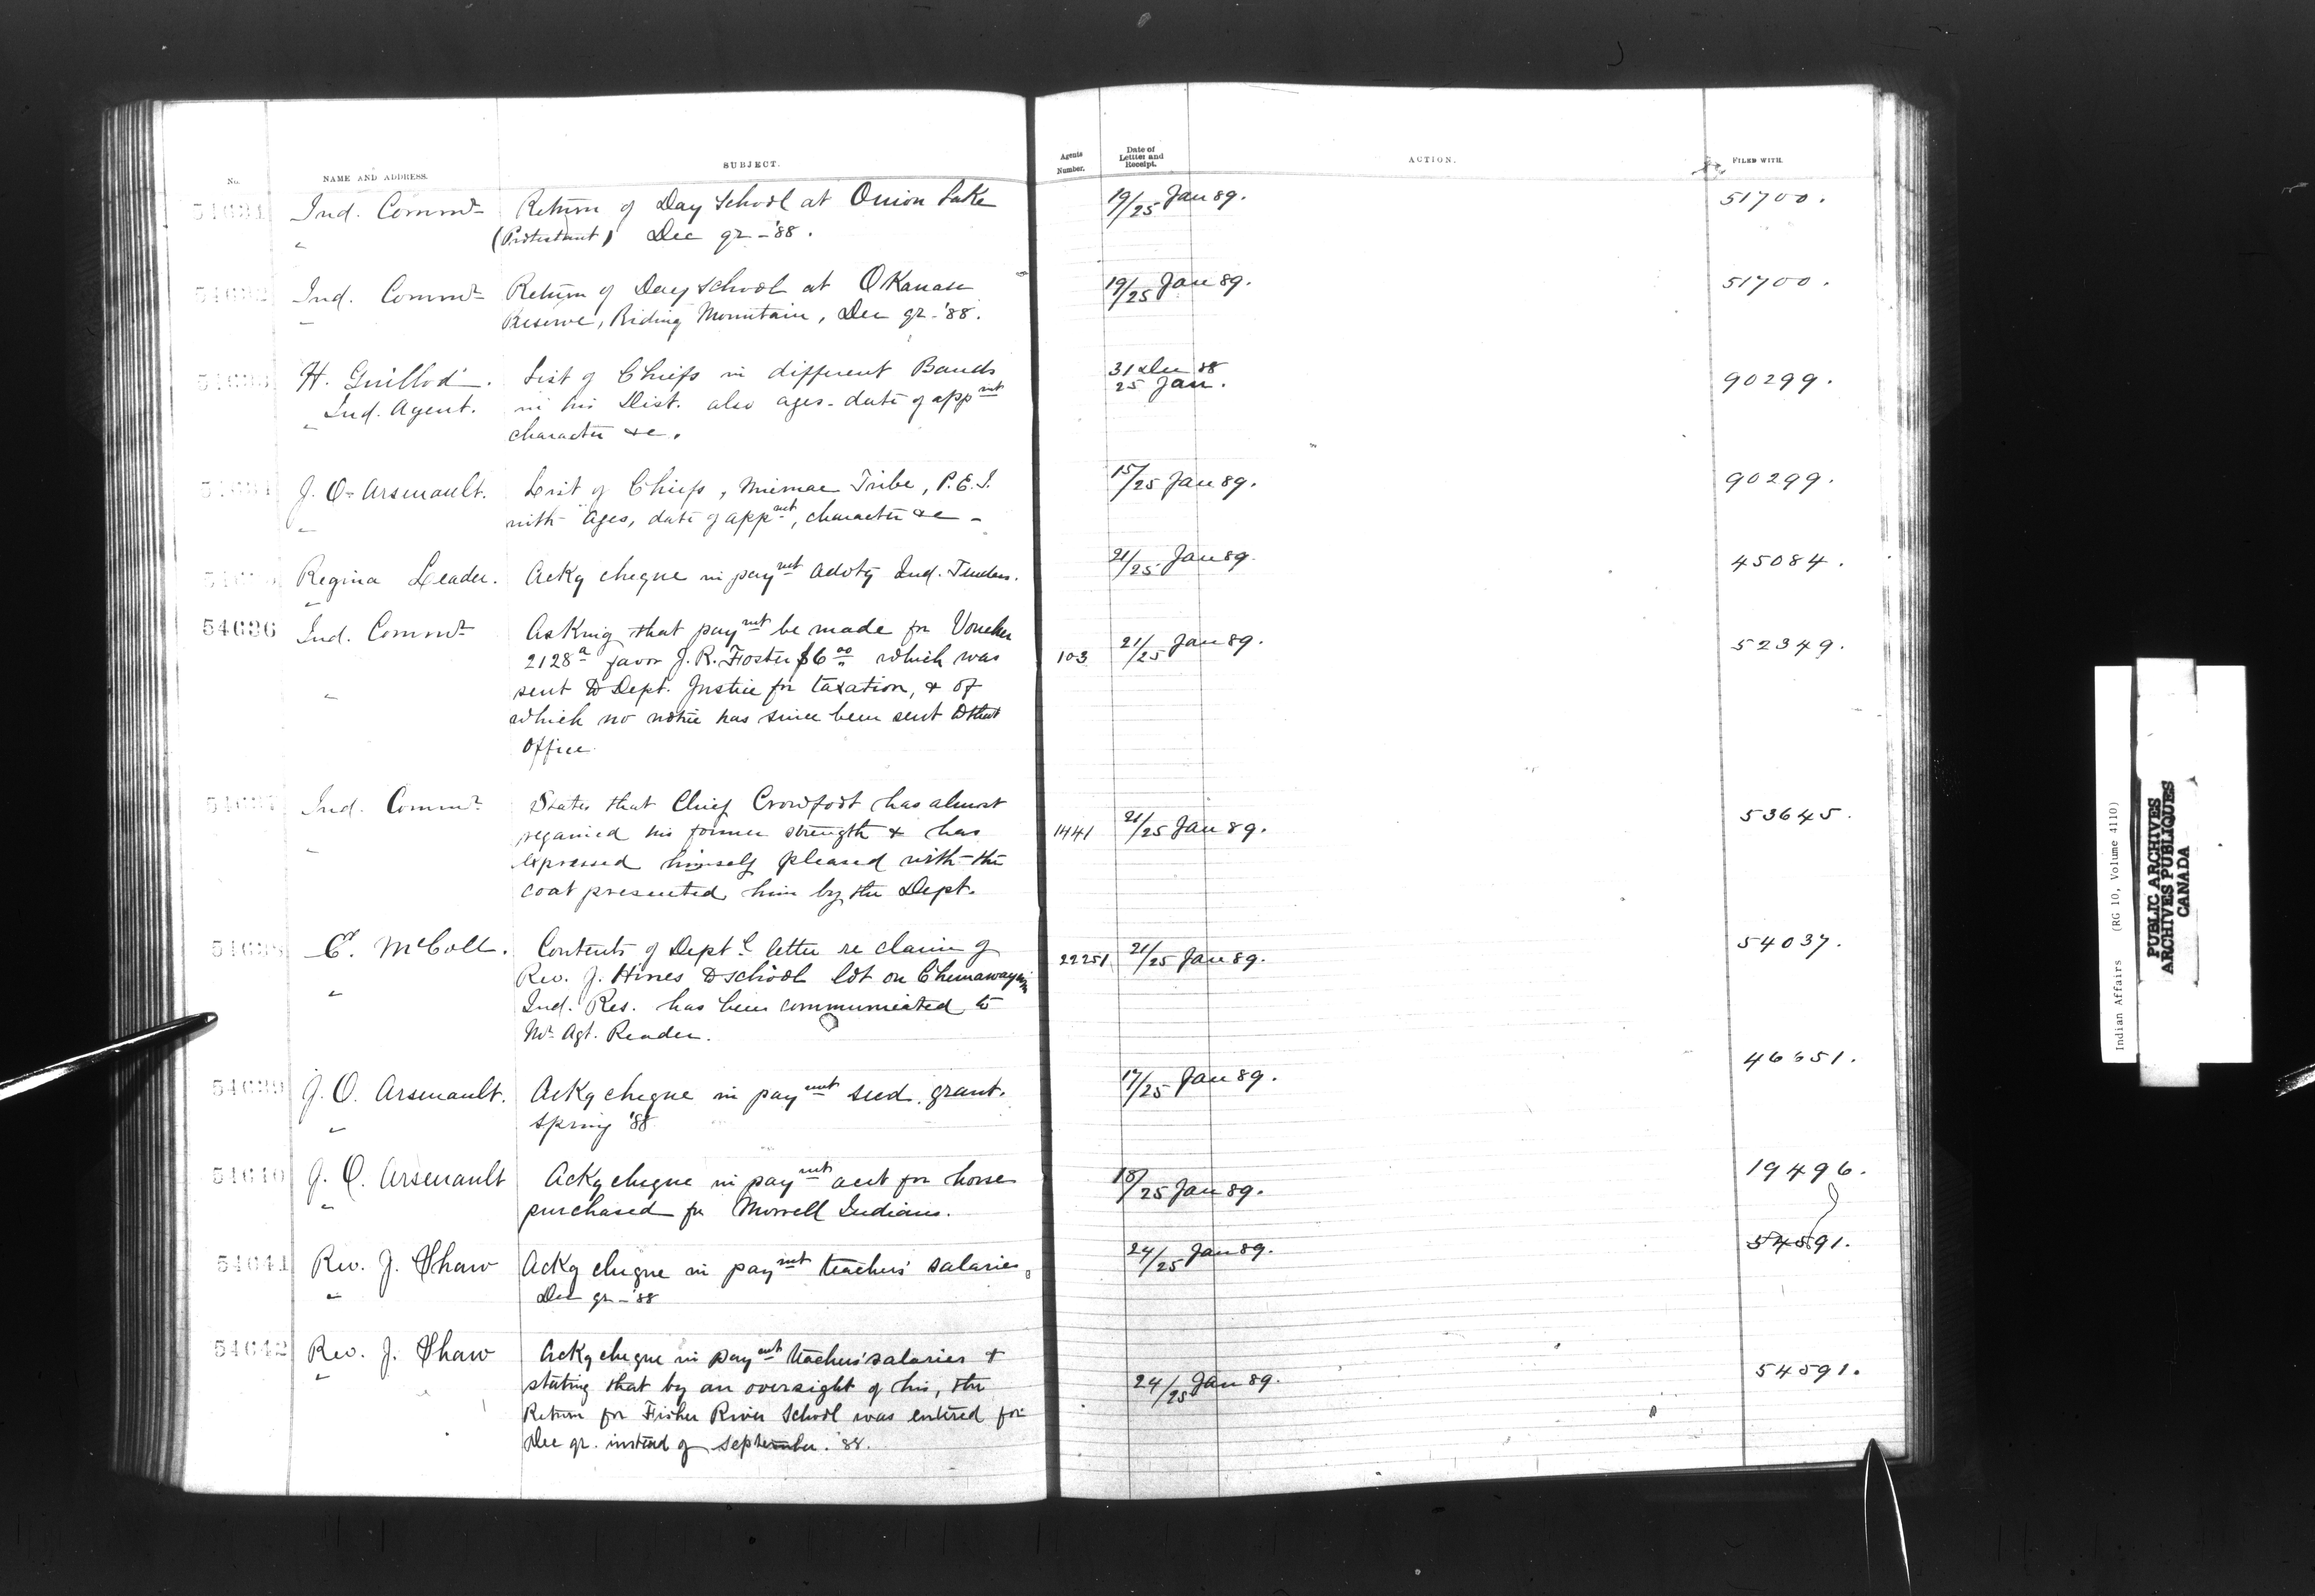 No. NAME AND ADDRESS. SUBJECT. Agents Number. Date of Letter and Receipt. ACTION. FILED WITH.
54631 Ind. Commr Return of Day School at Onion Lake 19/25 Jan 89. 51700.
" (Protestant) Dec qr - '88.
54632 Ind. Commr Return of Day School at OKanase 19/25 Jan 89. 51700.
" Reserve, Riding Mountain, Dec qr - '88.
54633 H. Guillod. List of Chiefs in different Bands 31 Dec 88 90299.
Ind. Agent. in his Dist. also ages - date of appmt 25 Jan.
" character &c.
54634 J. O. Arsenault. List of Chiefs, Micmac Tribe, P.E.I. 15/25 Jan 89. 90299.
" with ages, date of appmt, character &c -
54635 Regina Leader. Ackg cheque in paymt advtg Ind. Tenders. 21/25 Jan 89. 45084.
"
54636 Ind. Commr Asking that paymt be made for Voucher 103 21/25 Jan 89. 52349.
2128a favor J. R. Foster $6.00 which was
sent to Dept. Justice for taxation, & of
" which no notice has since been sent to that
Office.
54637 Ind. Commr States that Chief Crowfoot has almost 1441 21/25 Jan 89. 53645.
" regained his former strength & has
expressed himself pleased with the
coat presented him by the Dept.
54638 E. McColl. Contents of Deptl letter re claim of 22251 21/25 Jan 89. 54037.
Rev. J. Hines to school lot on Chemawawin
" Ind. Res. has been communicated to
Mr Agt. Reader.
54639 J. O. Arsenault. Ackg cheque in paymt seed grant. 17/25 Jan 89. 46651.
" Spring '88
54640 J. O. Arsenault Ackg cheque in paymt acct for horse 18/25 Jan 89. 19496.
" purchased for Morrell Indians.
54641 Rev. J. Shaw Ackg cheque in paymt teachers' salaries, 24/25 Jan 89. 54591.
" Dec qr - '88
54642 Rev. J. Shaw Ackg cheque in paymt teachers' salaries & 24/25 Jan 89. 54591.
" stating that by an oversight of his, the
Return for Fisher River School was entered for
Dec qr. instead of September. '88.
Indian Affairs (RG 10, Volume 4110)
PUBLIC ARCHIVES
ARCHIVES PUBLIQUES
CANADA